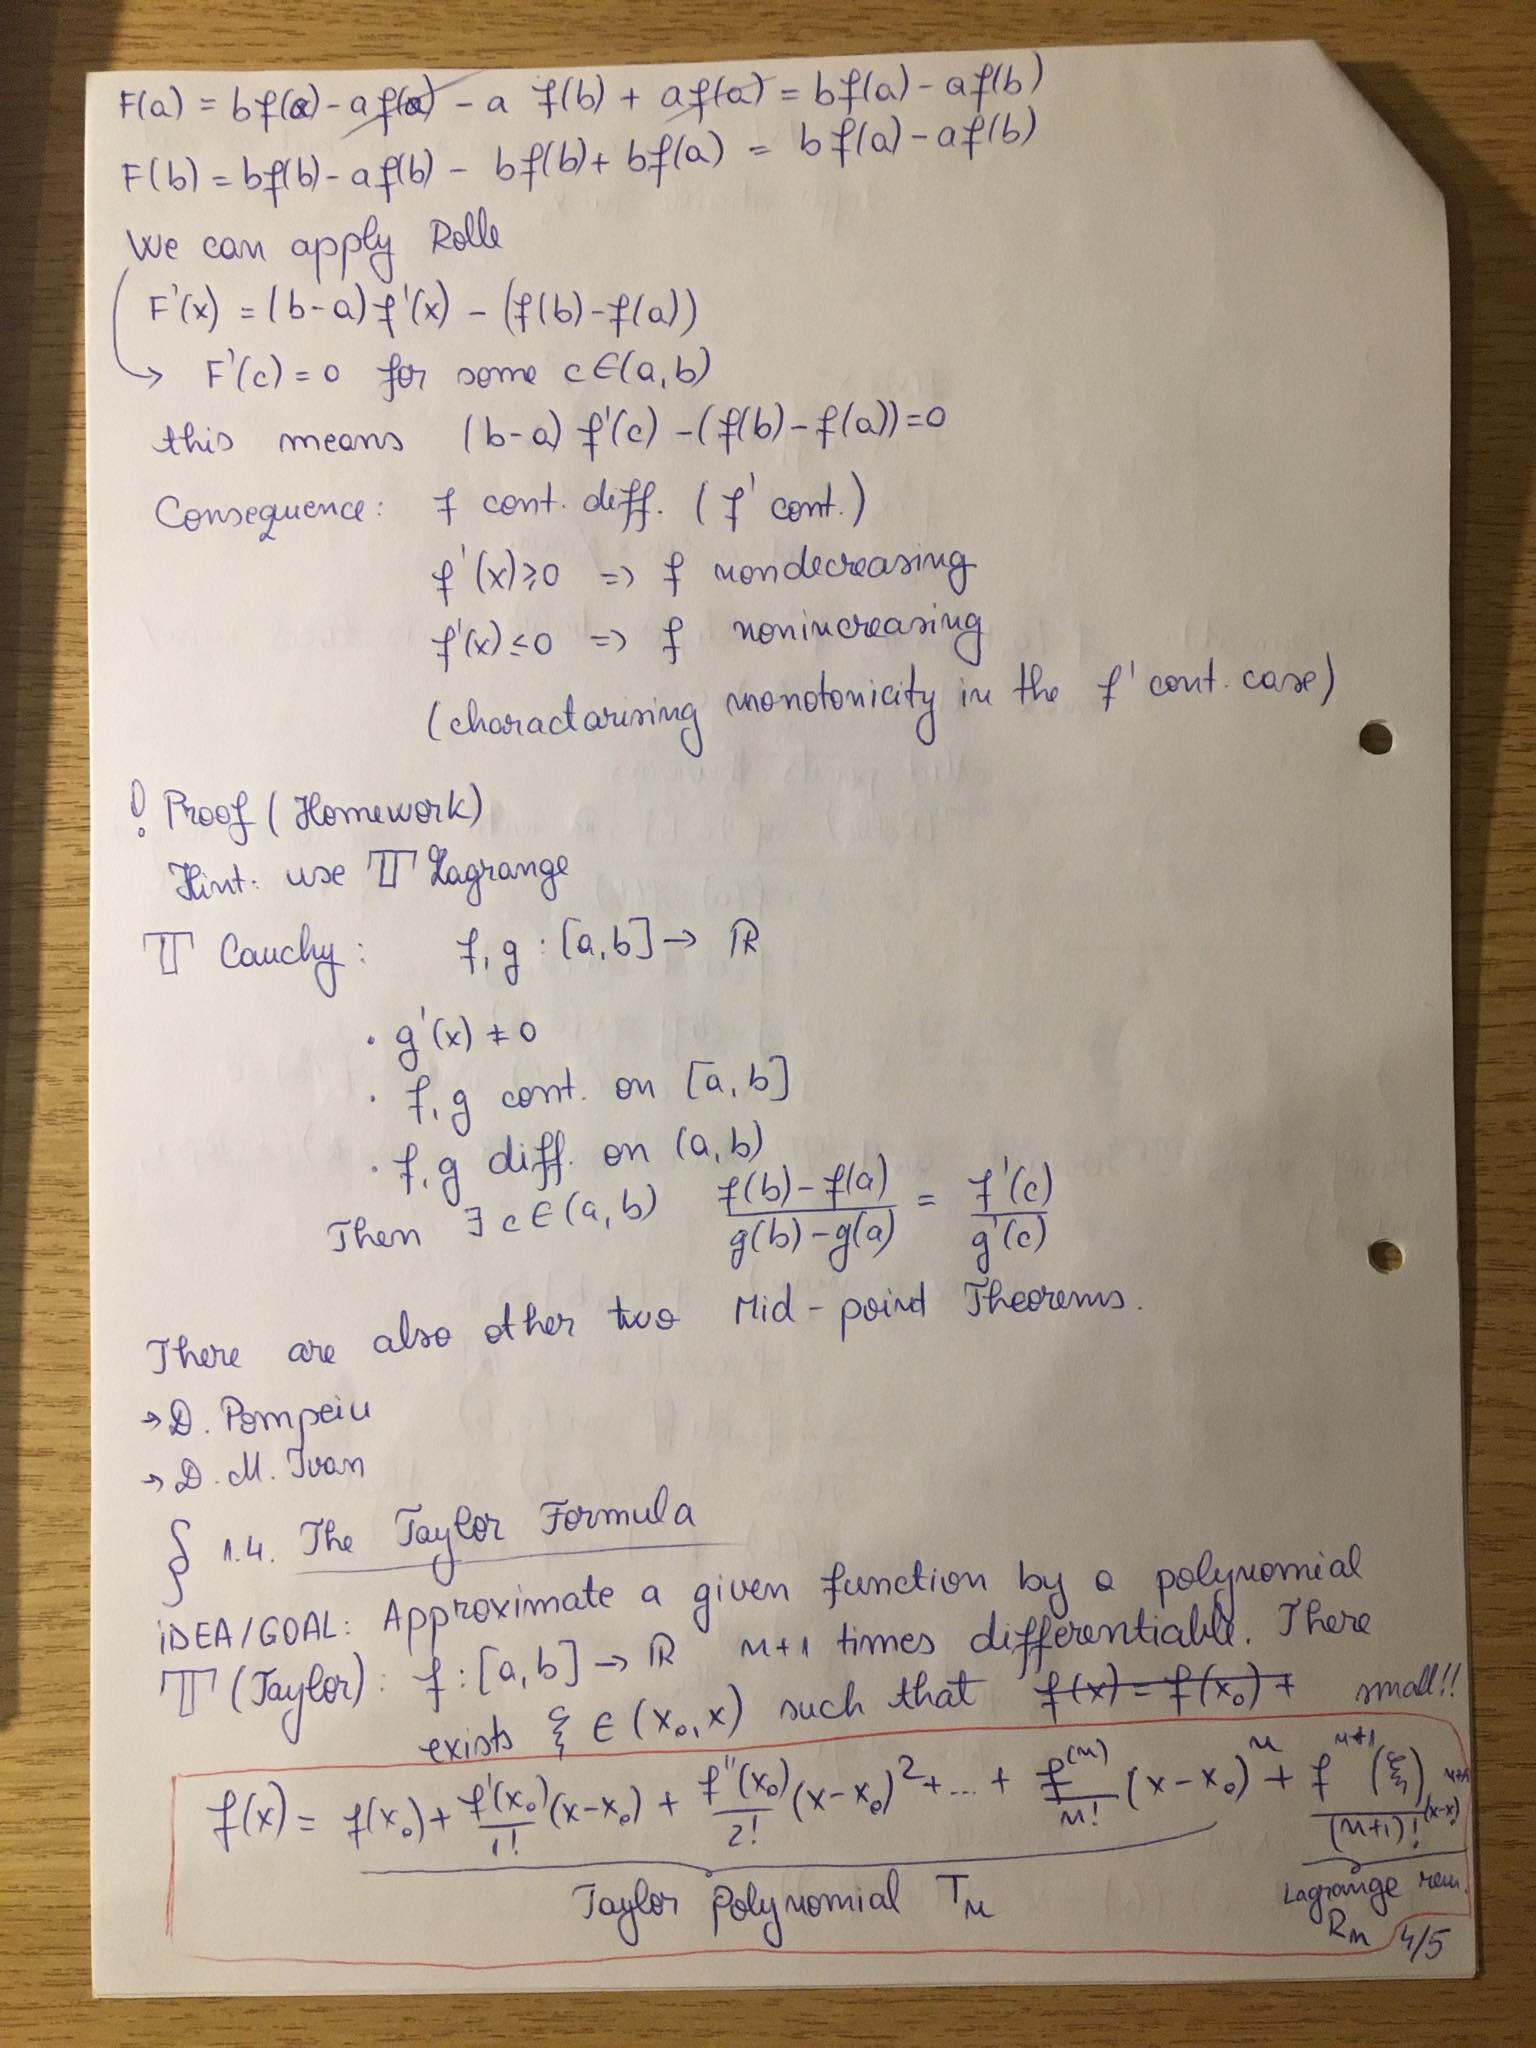 F(a) = bf(a) - af(a) - a f(b) + af(a) = bf(a) - af(b)
F(b) = bf(b) - af(b) - bf(b) + bf(a) = bf(a) - af(b)
We can apply Rolle
F'(x) = (b-a) f'(x) - (f(b) - f(a))
→ F'(c) = 0 for some c∈(a,b)
this means (b-a) f'(c) - (f(b) - f(a)) = 0
Consequence: f cont. diff. (f' cont.)
f'(x) ≥ 0 => f nondecreasing
f'(x) ≤ 0 => f nonincreasing
(charactarising monotonicity in the f' cont. case)
! Proof (Homework)
Hint: use T Lagrange
T Cauchy: f, g : [a,b] → ℝ
· g'(x) ≠ 0
· f, g cont. on [a,b]
· f, g diff. on (a,b)
Then ∃ c∈(a,b) (f(b) - f(a))/(g(b) - g(a)) = f'(c)/g'(c)
There are also other two Mid-point Theorems.
→ D. Pompeiu
→ D. M. Ivan
§ 1.4. The Taylor Formula
iDEA/GOAL: Approximate a given function by a polynomial
T (Taylor): f : [a,b] → ℝ n+1 times differentiable. There
exists ξ ∈ (x₀, x) such that f(x) = f(x₀) + small!!
f(x) = f(x₀) + f'(x₀)/1! (x-x₀) + f''(x₀)/2! (x-x₀)² + ... + f⁽ⁿ⁾/n! (x-x₀)ⁿ + fⁿ⁺¹(ξ)/(n+1)! (x-x₀)ⁿ⁺¹
Taylor Polynomial Tₙ Lagrange rem.
Rₙ 4/5